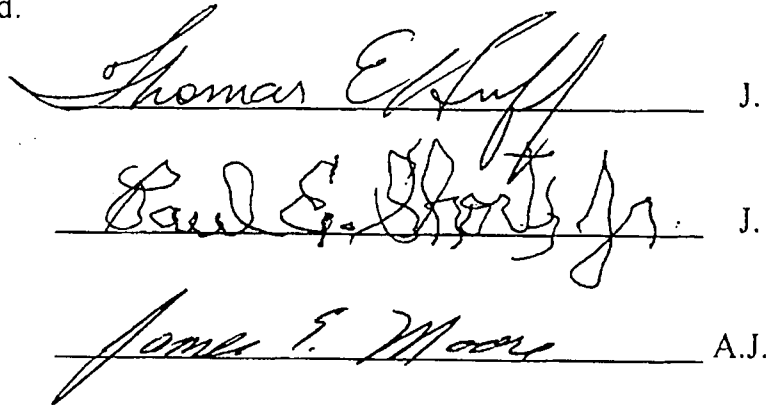 d.
Thomas E Huff J.
Paul E. Short, Jr. J.
James S. Moore A.J.